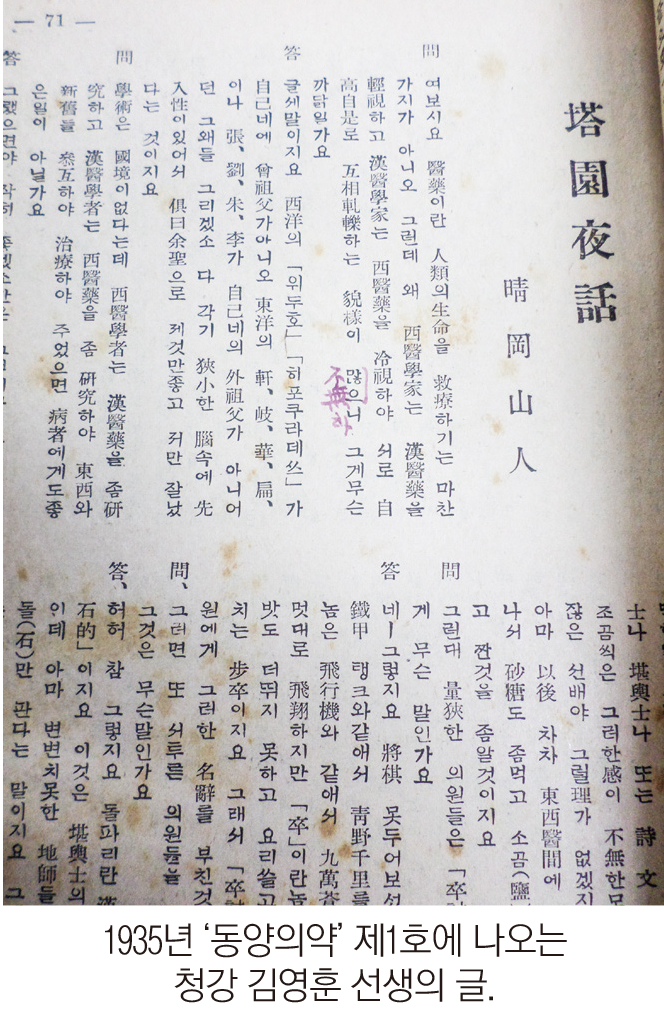 — 71 —
塔園夜話
晴岡山人
問 여보시요 醫藥이란 人類의生命을 救療하기는 마찬
가지가 아니오 그런데 왜 西醫學家는 漢醫藥을
輕視하고 漢醫學家는 西醫藥을 冷視하야 서로 自
高自是로 互相軋轢하는 貌樣이 많으니 그게무슨
不無하
까닭일가요
答 글세말이지요 西洋의 「위두호」「히포쿠라데쓰」가
自己네에 曾祖父가아니오 東洋의 軒、岐、華、扁、
이나 張、劉、朱、李가 自己네의 外祖父가 아니어
던 그왜들 그리겠소 다 각기 狹小한 腦속에 先
入性이있어서 俱曰余聖으로 제것만좋고 저만 잘났
다는 것이지요
問 學術은 國境이없다는데 西醫學者는 漢醫藥을 좀硏
究하고 漢醫學者는 西醫藥을 좀 硏究하야 東西와
新舊를 叅互하야 治療하야 주었으면 病者에게도좋
은일이 아닐가요
答 그랬으면야
士나 堪輿士나 또는 詩文
조곰씩은 그러한感이 不無한
잖은 선배야 그럴理가 없겠지
아마 以後 차차 東西醫間에
나서 砂糖도 좀먹고 소곰(鹽
고 짠것을 좀알것이지요
問 그런대 量狹한 의원들은 「卒
게 무슨 말인가요
答 네ㅣ그렇지요 將棋 못두어보선
鐵甲 탱크와같애서 靑野千里를
놈은 飛行機와 같애서 九萬蒼
멋대로 飛翔하지만 「卒」이란놈
밧도 더뛰지 못하고 요리쓸고
치는 步卒이지요 그래서 「卒
원에게 그러한 名辭를 부친것
問、그러면 또 서투른 의원들을
그것은 무슨말인가요
答、허허 참 그렇지요 돌파리란
石的」이지요 이것은 堪輿士의
인데 아마 변변치못한 地師들
돌(石)만 판다는 말이지요 그
1935년 ‘동양의약’ 제1호에 나오는
청강 김영훈 선생의 글.